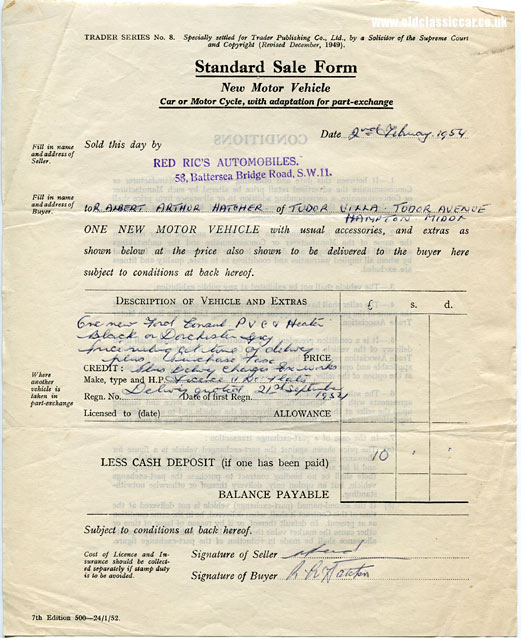 www.oldclassiccar.co.uk
TRADER SERIES No. 8. Specially settled for Trader Publishing Co., Ltd., by a Solicitor of the Supreme Court
and Copyright (Revised December, 1949).
Standard Sale Form
New Motor Vehicle
Car or Motor Cycle, with adaptation for part-exchange
Date 2nd February, 1954
Fill in name
and address of
Seller.
Sold this day by
RED RIC'S AUTOMOBILES.
58, Battersea Bridge Road, S.W.11.
Fill in name
and address of
Buyer.
to R ALBERT ARTHUR HATCHER of TUDOR VILLA TUDOR AVENUE
HAMPTON MIDDX
ONE NEW MOTOR VEHICLE with usual accessories, and extras as
shown below at the price also shown to be delivered to the buyer here
subject to conditions at back hereof.
DESCRIPTION OF VEHICLE AND EXTRAS £ s. d.
One new Ford Consul P V C & Heater
Black or Dorchester Grey
Price ruling at time of delivery
plus Purchase Tax PRICE
CREDIT: Plus Delivery Charges Ex works
Where
another
vehicle is
taken in
part-exchange
Make, type and H.P. Licence & No Plates
Delivery quoted 21st September
Regn. No. Date of first Regn. 1954
Licensed to (date) ALLOWANCE
LESS CASH DEPOSIT (if one has been paid) 10 " "
BALANCE PAYABLE
Subject to conditions at back hereof.
Cost of Licence and In-
surance should be collect-
ed separately if stamp duty
is to be avoided.
Signature of Seller
Signature of Buyer
7th Edition 500—24/1/52.